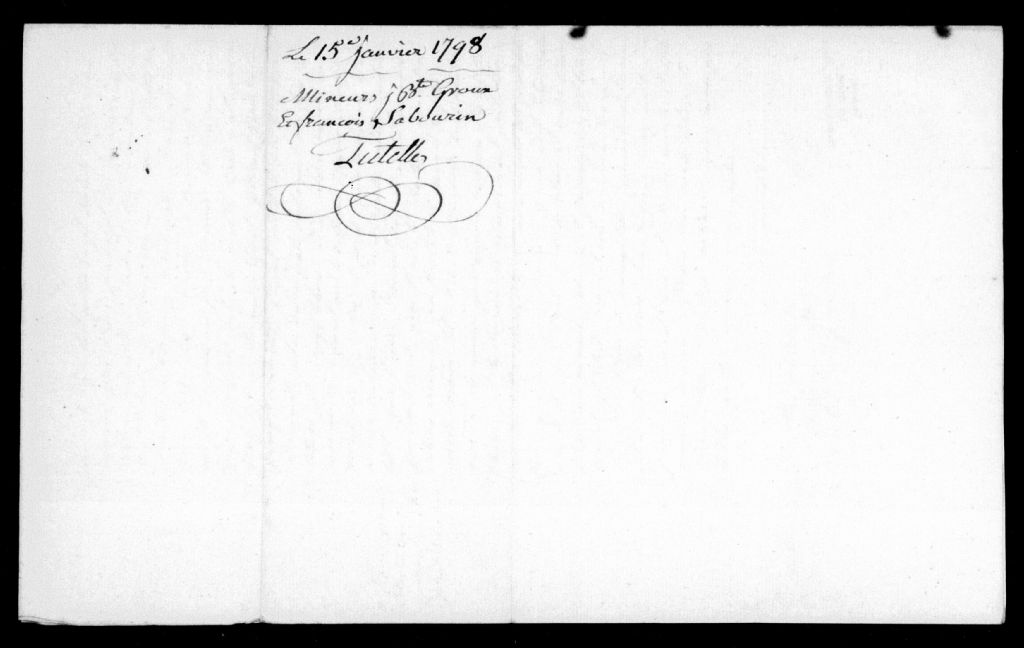 Le 15e janvier 1798
Mineurs j Bte Groux
Et francois Sabourin
Tutelle